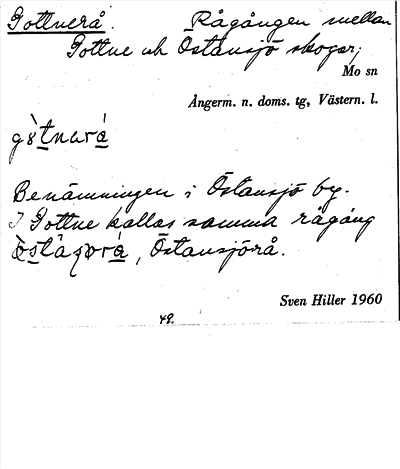 Gottnerå. Rågången mellan
Gottne och Östansjö skogar;
Mo sn
Ångerm. n. doms. tg, Västern. l.
Benämningen i Östansjö by.
I Gottne kallas samma rågång
Östansjörå.
Sven Hiller 1960
49.